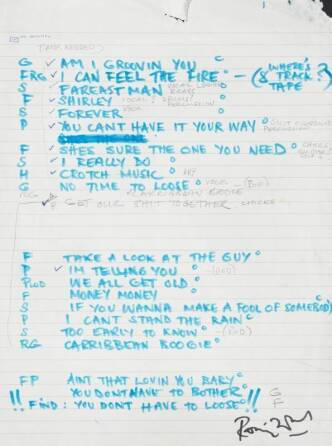 TAPE NEEDED
G ✓ AM I GROOVIN YOU
FRG ✓ I CAN FEEL THE FIRE - (WHERE'S 8 TRACK TAPE?
S ✓ FAREAST MAN VOCAL
F ✓ SHIRLEY VOCAL DRUMS PERCUSSION
S ✓ FOREVER VOCAL
P ✓ YOU CANT HAVE IT YOUR WAY PERCUSSION
F ✓ SHES SURE THE ONE YOU NEED
S ✓ I REALLY DO
H ✓ CROTCH MUSIC
G ✓ NO TIME TO LOOSE VOCAL
RG CARRIBBEAN BOOGIE
✓ F GET OUR SHIT TOGETHER
F TAKE A LOOK AT THE GUY
P ✓ IM TELLING YOU
WE ALL GET OLD
F MONEY MONEY
S IF YOU WANNA MAKE A FOOL OF SOMEBODY
P I CANT STAND THE RAIN
S TOO EARLY TO KNOW
RG CARRIBBEAN BOOGIE
FP AINT THAT LOVIN YOU BABY
YOU DONT HAVE TO BOTHER G
!! FIND: YOU DONT HAVE TO LOOSE !! F